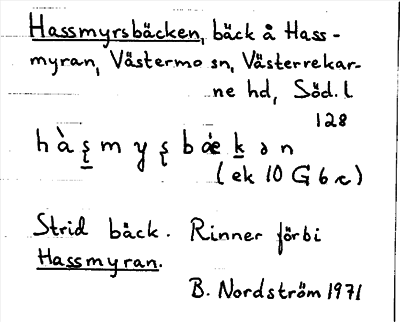 Hassmyrsbäcken, bäck å Hass-
myran, Västermo sn, Västerrekar-
ne hd, Söd. l
128
(ek 10 G 6 c)
Strid bäck. Rinner förbi
Hassmyran.
B. Nordström 1971